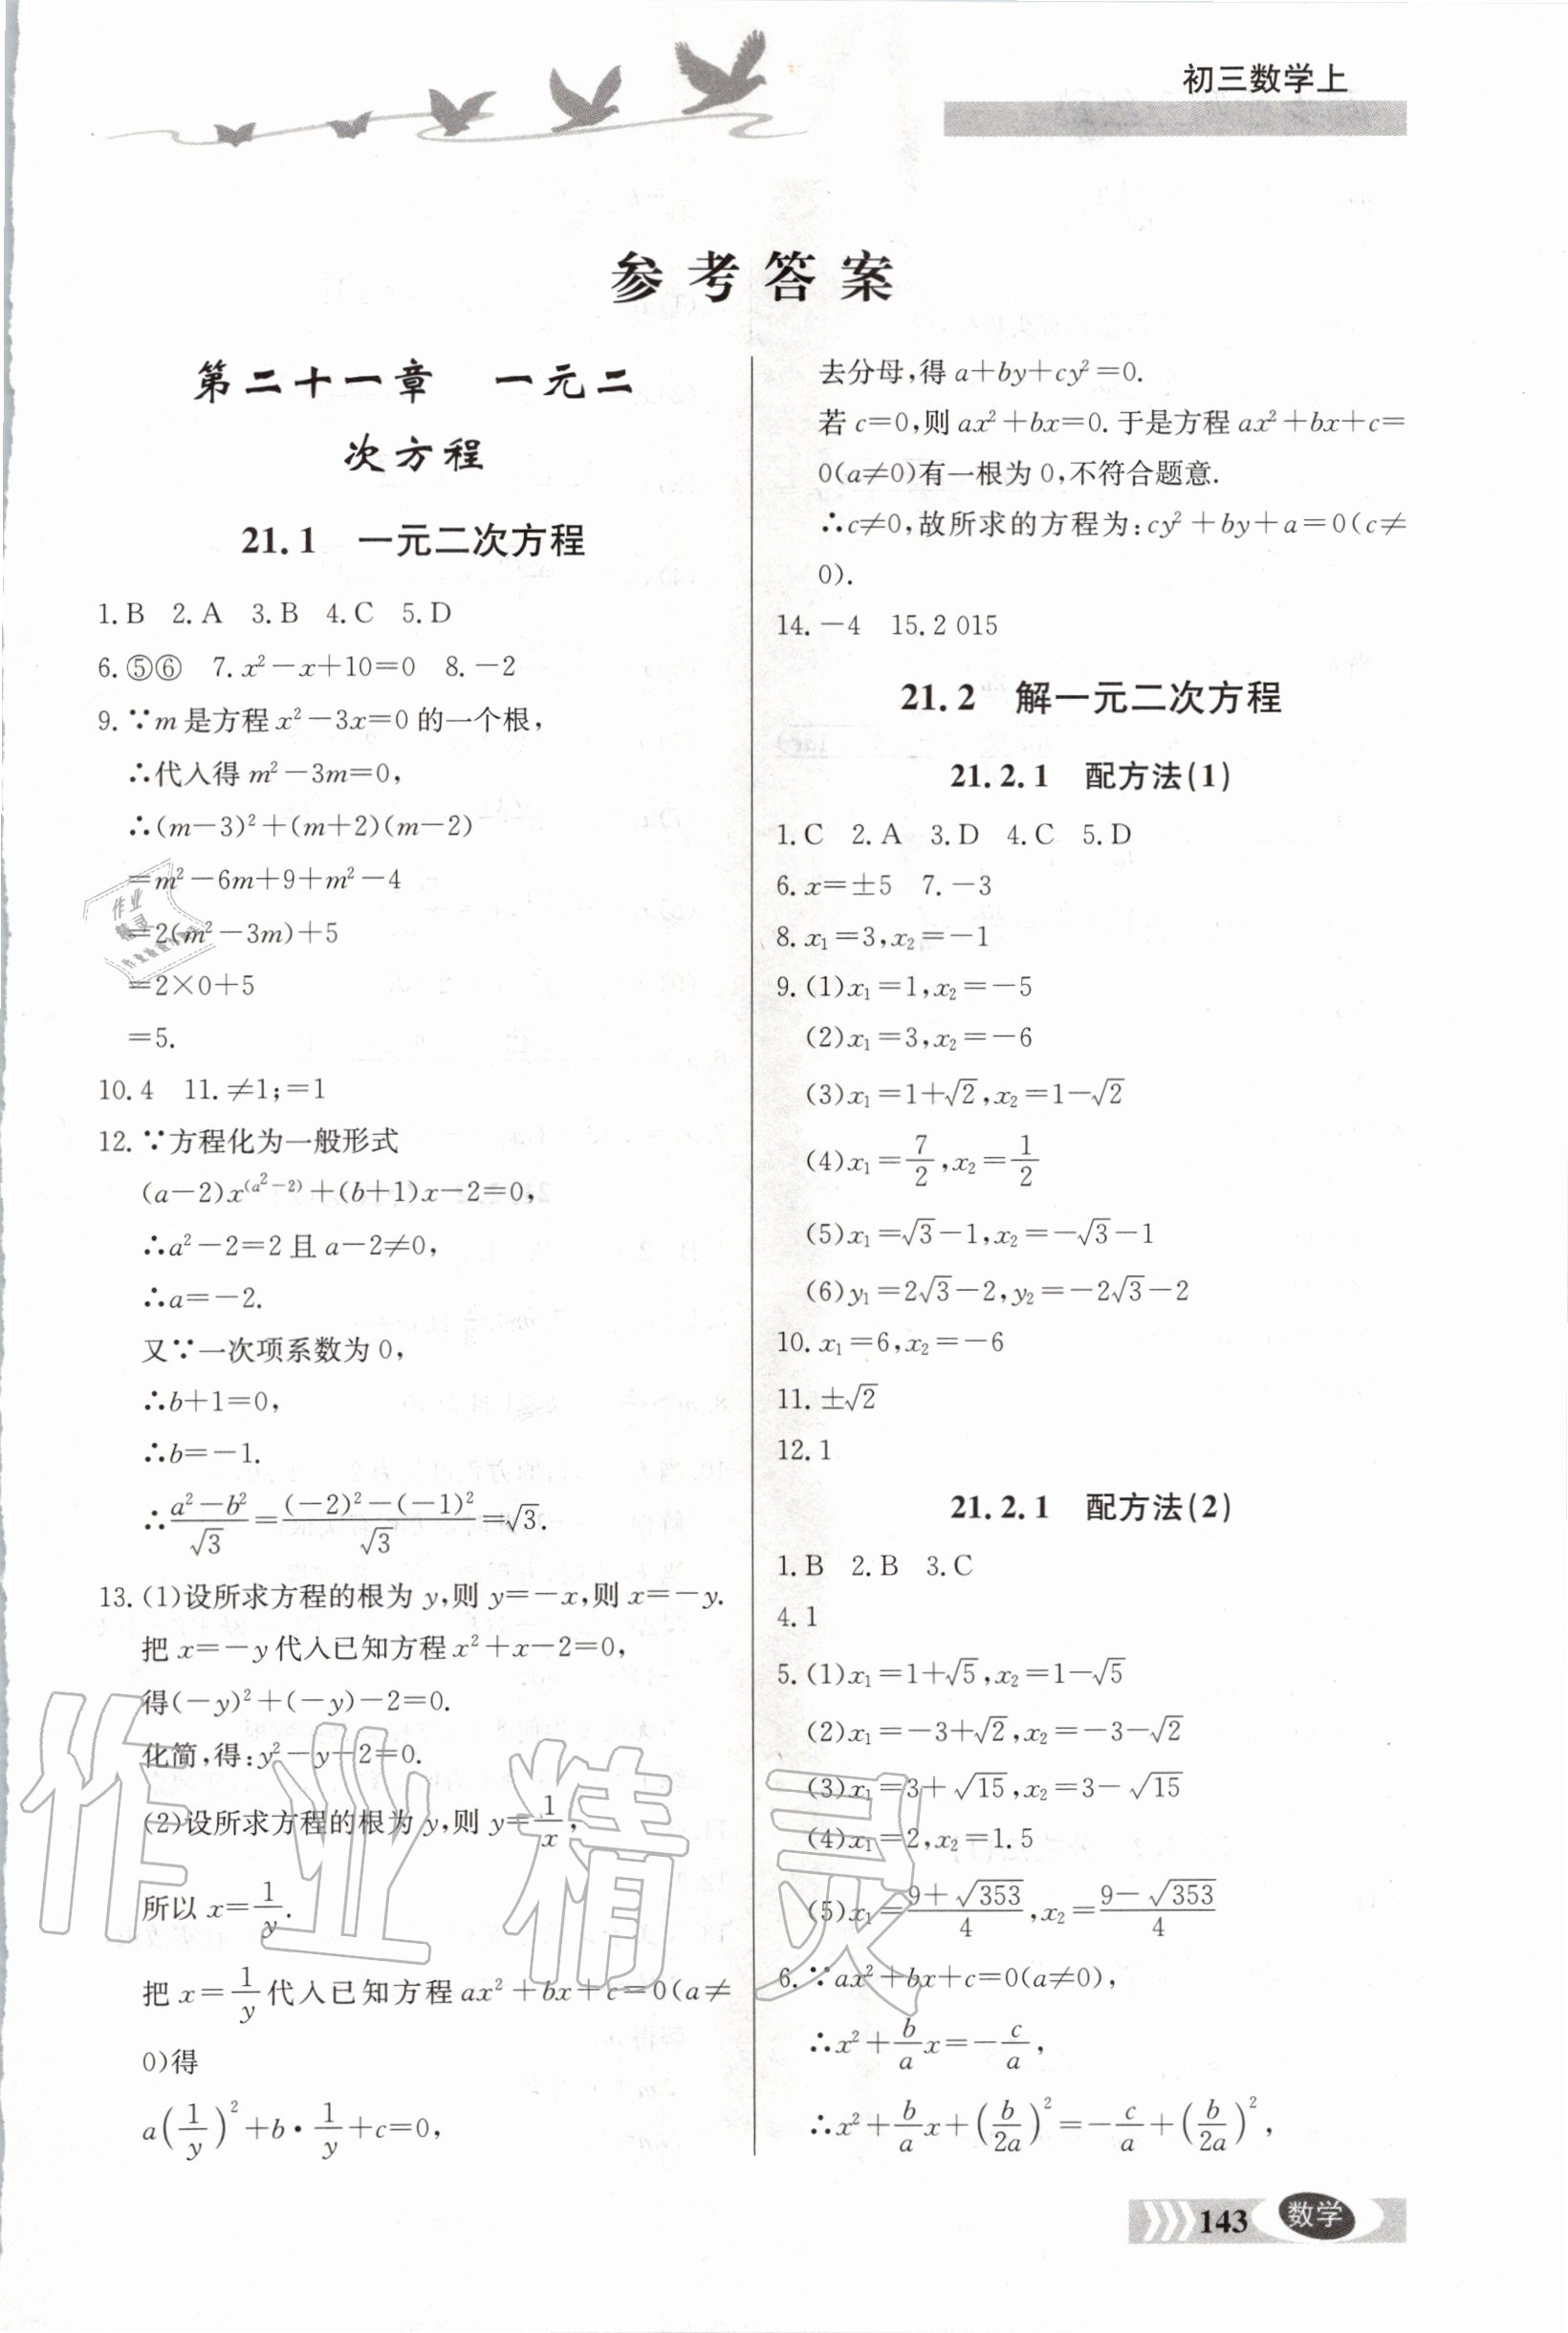 初三数学上
参考答案
第二十一章 一元二
次方程
21.1 一元二次方程
1.B 2.A 3.B 4.C 5.D
6.⑤⑥ 7.x²-x+10=0 8.-2
9.∵m是方程x²-3x=0的一个根,
∴代入得m²-3m=0,
∴(m-3)²+(m+2)(m-2)
=m²-6m+9+m²-4
=2(m²-3m)+5
=2×0+5
=5.
10.4 11.≠1;=1
12.∵方程化为一般形式
(a-2)x^(a²-2)+(b+1)x-2=0,
∴a²-2=2且a-2≠0,
∴a=-2.
又∵一次项系数为0,
∴b+1=0,
∴b=-1.
∴(a²-b²)/√3=((-2)²-(-1)²)/√3=√3.
13.(1)设所求方程的根为y,则y=-x,则x=-y.
把x=-y代入已知方程x²+x-2=0,
得(-y)²+(-y)-2=0.
化简,得:y²-y-2=0.
(2)设所求方程的根为y,则y=1/x,
所以x=1/y.
把x=1/y代入已知方程ax²+bx+c=0(a≠
0)得
a(1/y)²+b·1/y+c=0,
去分母,得a+by+cy²=0.
若c=0,则ax²+bx=0.于是方程ax²+bx+c=
0(a≠0)有一根为0,不符合题意.
∴c≠0,故所求的方程为:cy²+by+a=0(c≠
0).
14.-4 15.2 015
21.2 解一元二次方程
21.2.1 配方法(1)
1.C 2.A 3.D 4.C 5.D
6.x=±5 7.-3
8.x₁=3,x₂=-1
9.(1)x₁=1,x₂=-5
(2)x₁=3,x₂=-6
(3)x₁=1+√2,x₂=1-√2
(4)x₁=7/2,x₂=1/2
(5)x₁=√3-1,x₂=-√3-1
(6)y₁=2√3-2,y₂=-2√3-2
10.x₁=6,x₂=-6
11.±√2
12.1
21.2.1 配方法(2)
1.B 2.B 3.C
4.1
5.(1)x₁=1+√5,x₂=1-√5
(2)x₁=-3+√2,x₂=-3-√2
(3)x₁=3+√15,x₂=3-√15
(4)x₁=2,x₂=1.5
(5)x₁=(9+√353)/4,x₂=(9-√353)/4
6.∵ax²+bx+c=0(a≠0),
∴x²+(b/a)x=-c/a,
∴x²+(b/a)x+(b/2a)²=-c/a+(b/2a)²,
143 数学
作业精灵
作业
精灵